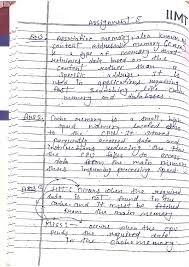 Assignment 5
IIMT
Ans1. Associative memory, also known as
content addressable memory (CAM)
is a type of memory that
retrieved data based on the
content rather than a
specific address. It is
used in applications requiring
fast searching, like cache
memory and databases.
Ans2. Cache memory is a small, high
speed memory located close
to the CPU. It stores
frequently accessed data and
instructions reducing the time
the CPU takes to access
data from the main memory
improving processing speed.
Ans3. Hit: occurs when the required
data is not found in the
cache and it must be fetched
from the main memory
Miss: occurs when the CPU
finds the required data
in the cache memory.